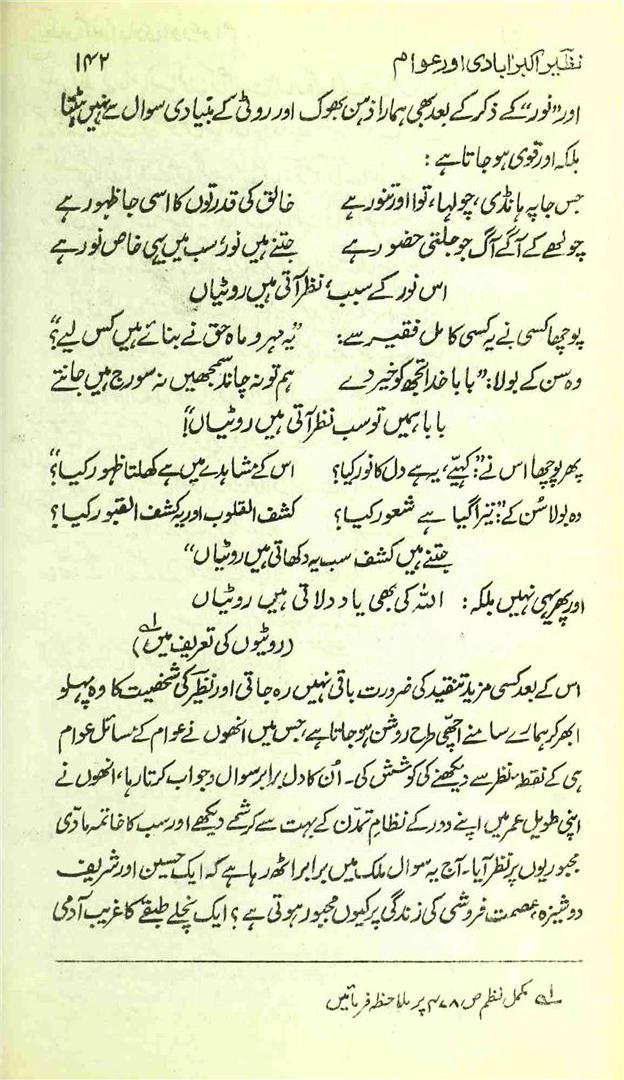 نظیر اکبرآبادی اور عوام ۱۴۲
اور ”نور“ کے ذکر کے بعد بھی ہمارا ذہن بھوک اور روٹی کے بنیادی سوال سے نہیں ہٹتا
بلکہ اور قوی ہو جاتا ہے :
جس جا پہ ہانڈی، چولہا، توا اور تنور ہے خالق کی قدرتوں کا اسی جا ظہور ہے
چولھے کے آگے آگ جو جلتی حضور ہے جتنے ہیں نور، سب میں یہی خاص نور ہے
اس نور کے سبب، نظر آتی ہیں روٹیاں
پوچھا کسی نے یہ کسی کامل فقیر سے: ”یہ مہر و ماہ حق نے بنائے ہیں کس لیے؟“
وہ سن کے بولا: ”بابا خدا تجھ کو خیر دے ہم تو نہ چاند سمجھیں نہ سورج ہیں جانتے
بابا ہمیں تو سب نظر آتی ہیں روٹیاں!“
پھر پوچھا اس نے: ”کہیے، یہ ہے دل کا نور کیا؟ اس کے مشاہدے میں ہے کھلتا ظہور کیا؟“
وہ بولا سُن کے: ”تیرا گیا ہے شعور کیا؟ کشف القلوب اور یہ کشف القبور کیا؟
جتنے ہیں کشف سب یہ دکھاتی ہیں روٹیاں“
اور پھر یہی نہیں بلکہ : اللہ کی بھی یاد دلاتی ہیں روٹیاں
(روٹیوں کی تعریف میں)؂۱
اس کے بعد کسی مزید تنقید کی ضرورت باقی نہیں رہ جاتی اور نظیرؔ کی شخصیت کا وہ پہلو
ابھر کر ہمارے سامنے اچھی طرح روشن ہو جاتا ہے، جس میں انھوں نے عوام کے مسائل عوام
ہی کے نقطۂ نظر سے دیکھنے کی کوشش کی۔ اُن کا دل برابر سوال و جواب کرتا رہا، انھوں نے
اپنی طویل عمر میں اپنے دور کے نظامِ تمدّن کے بہت سے کرشمے دیکھے اور سب کا خاتمہ مادّی
مجبوریوں پر نظر آیا۔ آج یہ سوال ملک میں برابر اٹھ رہا ہے کہ ایک حسین اور شریف
دوشیزہ، عصمت فروشی کی زندگی پر کیوں مجبور ہوتی ہے؟ ایک نچلے طبقے کا غریب آدمی
؂۱ مکمل نظم ص ۴۷۸ پر ملاحظہ فرمائیں